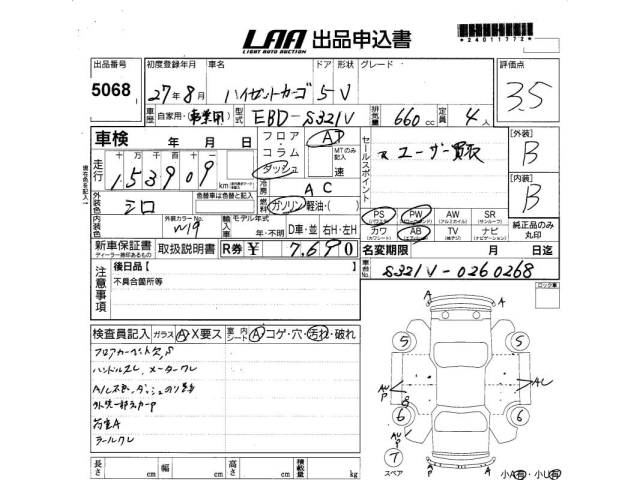 LAA 出品申込書
LIGHT AUTO AUCTION
*24011772*
出品番号
5068
初度登録年月
27年8月
車名
ハイゼットカーゴ
ドア 形状
5 V
グレード
評価点
3.5
車歴
自家用・事業用
型式
EBD-S321V
排気量
660 cc
定員
4 人
車検 年 月 日
フロア・コラム
ダッシュ
AT
MTのみ記入
速
セールスポイント
ユーザー買取
[外装]
B
[内装]
B
走行
十万千百十
153909
km
冷房
AC
外装色
シロ
色替車は色替と記入
燃料
ガソリン・軽油・( )
PS
(パワステ)
PW
(パワーウィンド)
AW
(アルミホイル)
SR
(サンルーフ)
カワ
(カワシート)
AB
(エアバッグ)
TV
(純正ナビ)
ナビ
(ナビゲーション)
純正品のみ丸印
内装色
外装カラーNo
W19
輸入車
モデル年式
年・不明
D車・並
右H・左H
新車保証書
ディーラー捺印あるもの
取扱説明書
R券
¥
7,690
名変期限 月 日迄
車台No.
S321V-0260268
注意事項
後日品 [ ]
不具合箇所等
ロック車
検査員記入
ガラス A・X要ス
室内シート A・コゲ・穴・汚れ・破れ
フロアカーペット欠、S
ハンドルスレ、メータークレ
荷室A
ラールワレ
A
A
5
5
AU
P
8
AU
6
6
AU
P
7
スペア
A
A
長さ cm
幅 cm
高さ cm
積載量 kg
小A有・小U有